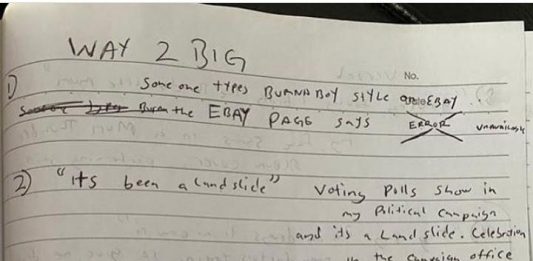 WAY 2 BIG
No.
1) Someone types BURNA BOY STYLE on EBAY
But the EBAY PAGE says ERROR
2) "Its been a landslide" Voting Polls show in
my Political Campaign
and its a Land slide. Celebration
in the Campaign office